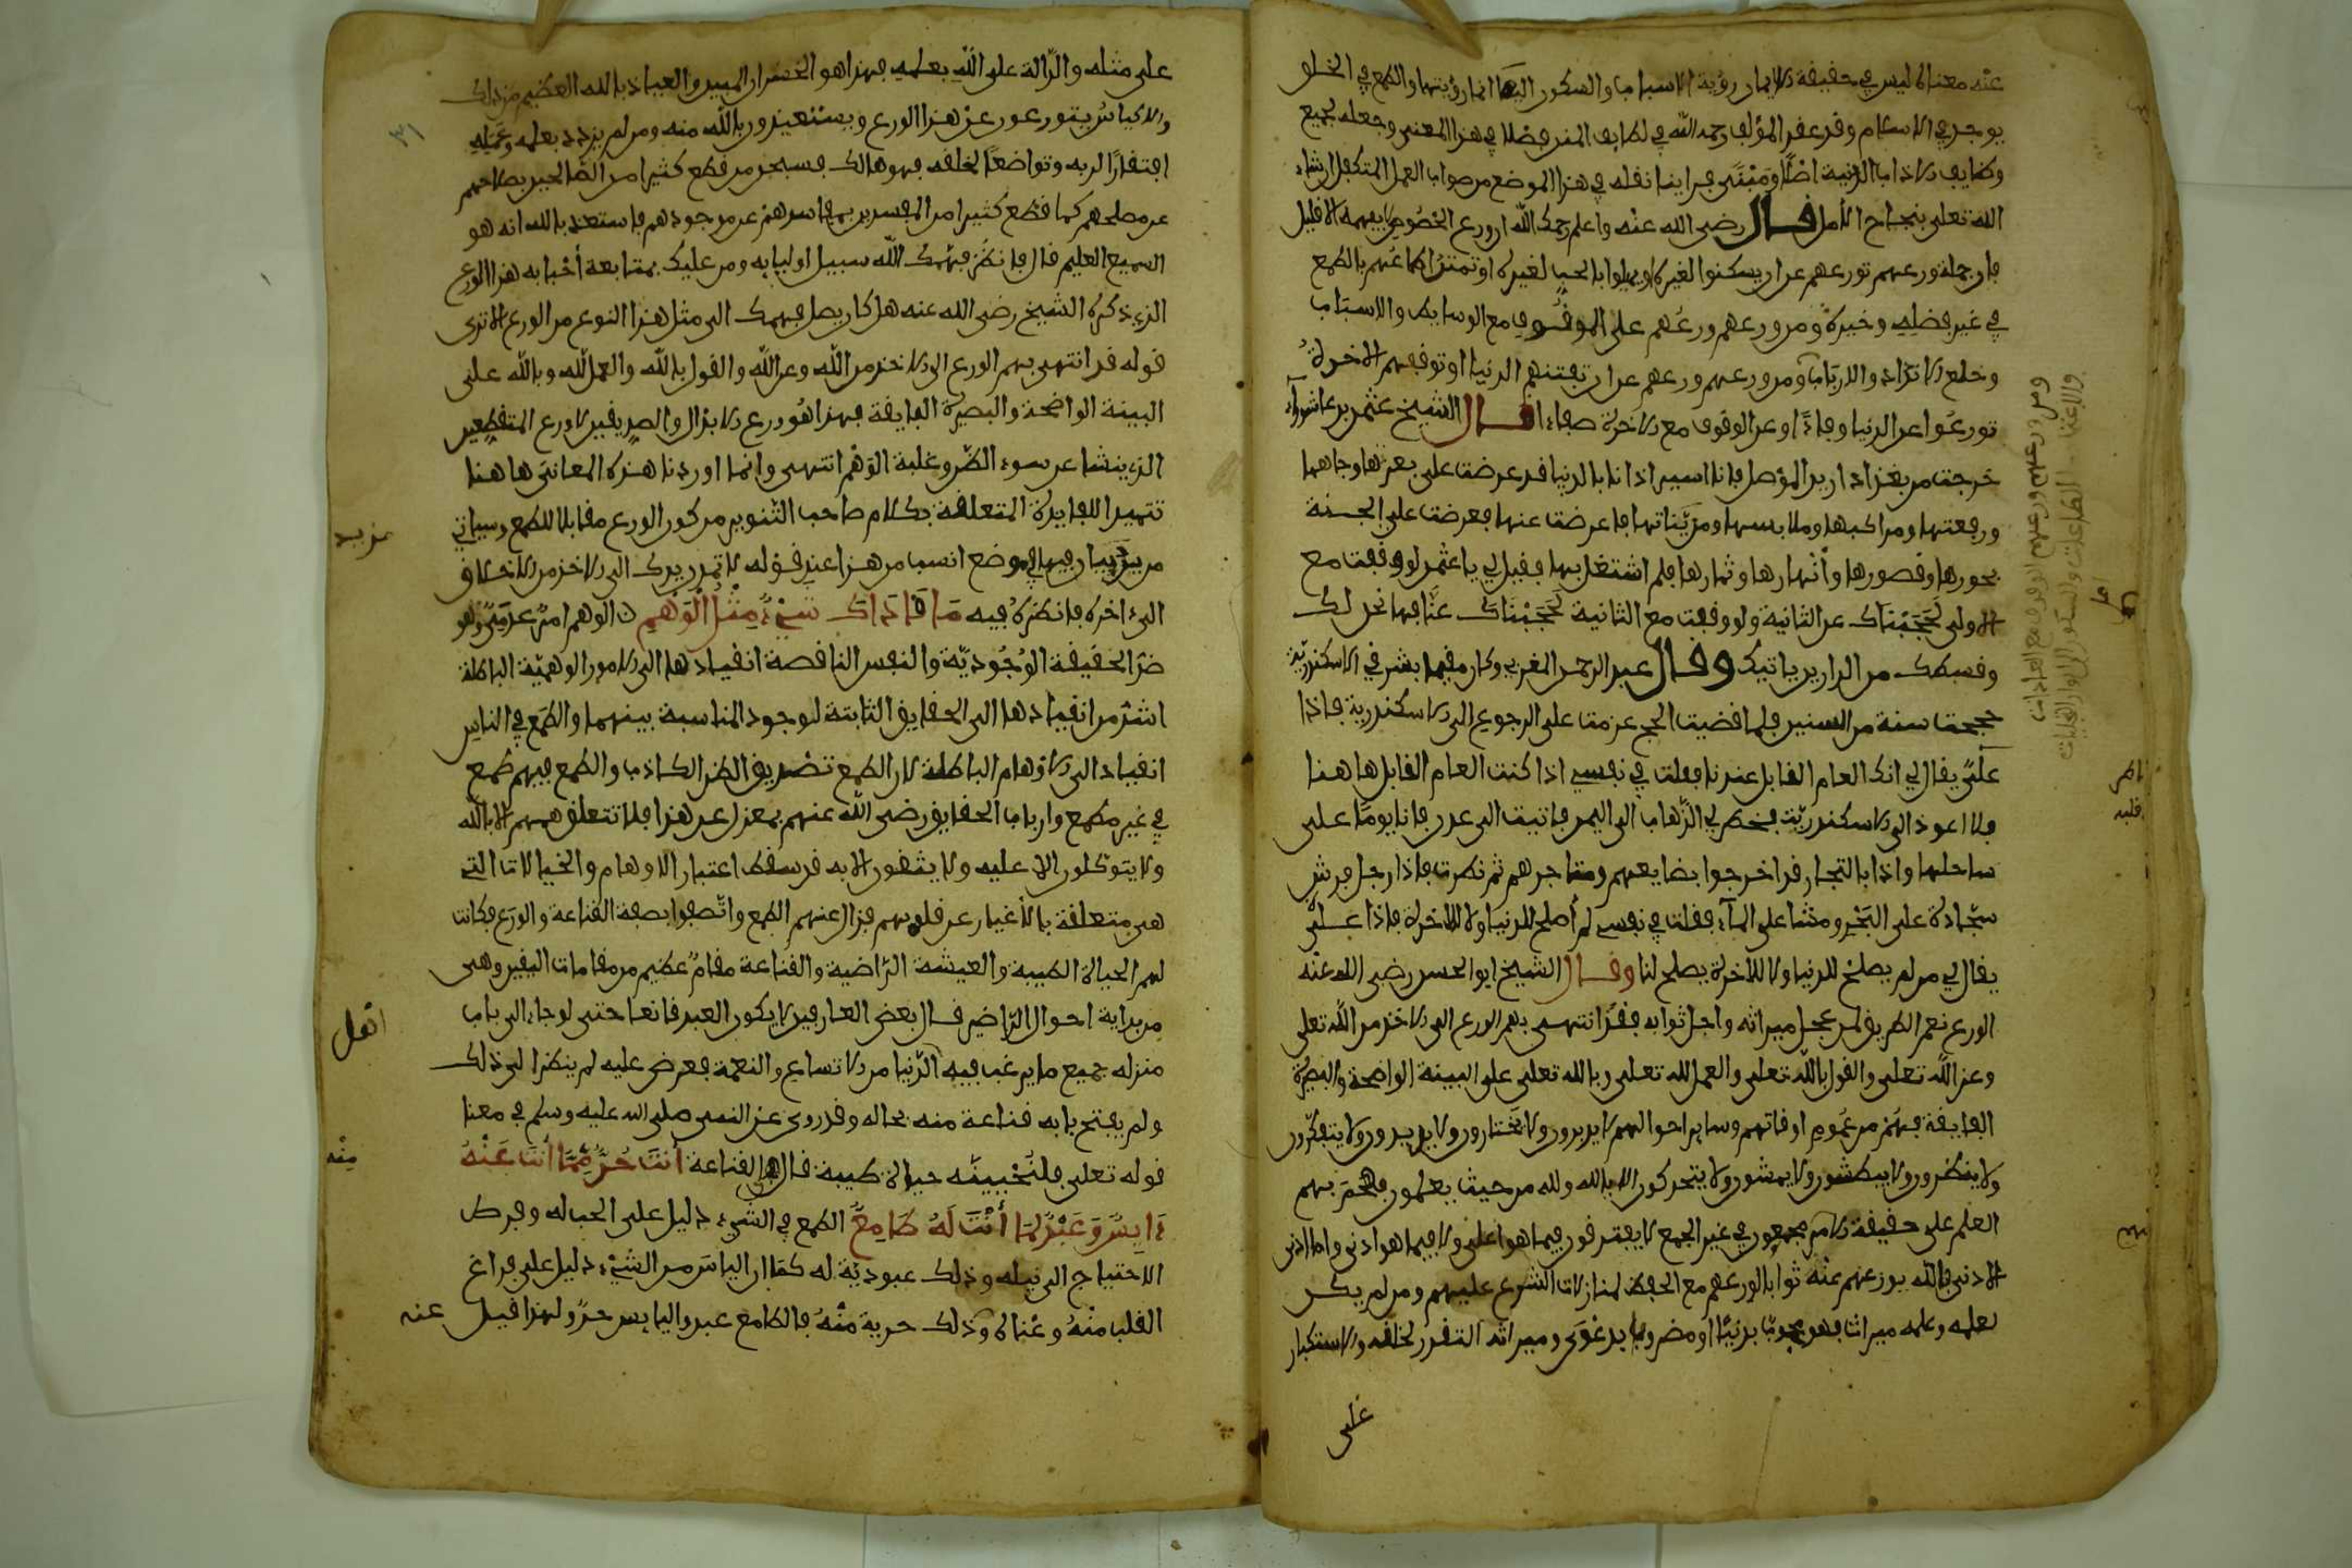 عنه معناه ليس في حقيقة الايمان رؤية الاسباب والسكون اليها انما رؤيتها والطمع في الخلق
يوجد في الاسلام وقد عقد المؤلف رحمه الله في لطايف المنن فصلا في هذا المعنى وجعله لجميع
وظايف الاداب الدينية اصلا ومبنى فراينا نقله في هذا الموضع من صواب العمل المتكفل ان شاء
الله تعلى بنجاح الامل قال رضي الله عنه واعلم رحمك الله ان ورع الخصوص لا يفهمه الا قليل
فان جملة ورعهم تورعهم عن ان يسكنوا لغيره او يميلوا بالحب لغيره او تمتد اطماعهم بالطمع
في غير فضله وخيره ومن ورعهم ورعهم على الوقوف مع الوسايط والاسباب
وخلع الانداد والارباب ومن ورعهم ورعهم عن ان تفتنهم الدنيا او توقفهم الاخرة
تورعوا عن الدنيا وفاء او عن الوقوف مع الاخرة صفاء قال الشيخ عثمن بن عاشوراء
خرجت من بغداد اريد الموصل فانا اسير اذا نا بالدنيا قد عرضت علي بعزها وجاهها
ورفعتها ومراكبها وملابسها ومزيناتها فاعرضت عنها فعرضت علي الجنة
بحورها وقصورها وانهارها وثمارها فلم اشتغل بها فقيل لي يا عثمن لو وقفت مع
الاولى لحجبناك عن الثانية ولو وقفت مع الثانية لحجبناك عنا فها نحن لك
وقسطك من الدارين ياتيك وقال عبد الرحمن المغربي وكان مقيما بشرقي الاسكندرية
حججت سنة من السنين فلما قضيت الحج عزمت على الرجوع الى الاسكندرية فاذا
علي يقال لي انك العام القابل عندنا فقلت في نفسي اذا كنت العام القابل ها هنا
فلا اعود الى الاسكندرية فخطر لي الذهاب الى اليمن فاتيت الى عدن فانا يوما على
ساحلها واذا بالتجار قد اخرجوا بضايعهم ومتاجرهم ثم نظرت فاذا رجل فرش
سجادة على البحر ومشا على الماء فقلت في نفسي لم اصلح للدنيا ولا للاخرة فاذا علي
يقال لي من لم يصلح للدنيا ولا للاخرة يصلح لنا وقال الشيخ ابو الحسن رضي الله عنه
الورع نعم الطريق لمن عجل ميراثه واجل ثوابه فقد انتهى بهم الورع الى الاخذ من الله تعلى
وعن الله تعلى والقول بالله تعلى والعمل لله تعلى وبالله تعلى على البينة الواضحة والبصيرة
الفايقة فهم في عموم اوقاتهم وساير احوالهم لا يدبرون ولا يختارون ولا يريدون ولا يتفكرون
ولا ينظرون ولا يبطشون ولا يمشون ولا يتحركون الا بالله ولله من حيث يعلمون هجم بهم
العلم على حقيقة الامر مجموعون في عين الجمع لا يفترقون فيما هو اعلى ولا فيما هو ادنى واما ادنى
الادنى فالله يوزعهم عنه ثوابا لورعهم مع الحفظ لمنازلات الشرع عليهم ومن لم يكن
لعلمه وعمله ميراث فهو محجوب بدنيا او مصروف بدعوى وميراثه التعزز لخلقه والاستكبار
على
ومن ورعهم ورعهم الوقوف مع العادات
والاعتماد على الطاعات والسكون الى انوار التجليات
على مثله والدالة على الله بعلمه فهذا هو الخسران المبين والعياذ بالله العظيم من ذلك
والاكياس يتورعون عن هذا الورع ويستعيذون بالله منه ومن لم يزدد بعلمه وعمله
افتقارا لربه وتواضعا لخلقه فهو هالك فسبحن من قطع كثيرا من الصالحين بصلاحهم
عن مصلحهم كما قطع كثيرا من المفسدين بفسادهم عن موجدهم فاستعذ بالله انه هو
السميع العليم قال فانظر فهمك الله سبيل اوليايه ومن عليك بمتابعة احبابه هذا الورع
الذي ذكره الشيخ رضي الله عنه هل كان يصل فهمك الى مثل هذا النوع من الورع الا ترى
قوله قد انتهى بهم الورع الى الاخذ من الله وعن الله والقول بالله والعمل لله وبالله على
البينة الواضحة والبصيرة الفايقة فهذا هو ورع الابدال والصديقين لا ورع المتنطعين
الذي ينشا عن سوء الظن وغلبة الوهم انتهى وانما اوردنا هذه المعاني ها هنا
تتميما للفايدة المتعلقة بكلام صاحب التنوير من كون الورع مقابلا للطمع وسياتي
مزيد بيان فيها في موضع انسب من هذا عند قوله لا تمدن يدك الى الاخذ من الخلايق
الى اخره فانظره فيه ما قادك شيء مثل الوهم ن الوهم امر عدمي وهو
ضد الحقيقة الوجودية والنفس الناقصة انقيادها الى الامور الوهمية الباطلة
اشد من انقيادها الى الحقايق الثابتة لوجود المناسبة بينهما والطمع في الناس
انقياد الى الاوهام الباطلة لان الطمع تصديق الظن الكاذب والطمع فيهم طمع
في غير مطمع وارباب الحقايق رضي الله عنهم بمعزل عن هذا فلا تتعلق هممهم الا بالله
ولا يتوكلون الا عليه ولا يثقون الا به قد سقط اعتبار الاوهام والخيالات التي
هي متعلقة بالاغيار عن قلوبهم فزال عنهم الطمع واتصفوا بصفة القناعة والورع فكانت
لهم الحياة الطيبة والعيشة الراضية والقناعة مقام عظيم من مقامات اليقين وهي
من بداية احوال الراضين قال بعض العارفين لا يكون العبد قانعا حتى لو جاء الى باب
منزله جميع ما يرغب فيه اهل الدنيا من الاتساع والنعمة فعرض عليه لم ينظر الى ذلك
ولم يفتح بابه قناعة منه بحاله وقد روي عن النبي صلى الله عليه وسلم في معنا
قوله تعلى فلنحيينه حياة طيبة قال هي القناعة انت حر مما انت عنه
ءايس وعبد لما انت له طامع الطمع في الشيء دليل على الحب له وفرط
الاحتياج الى نيله وذلك عبودية له كما ان الياس من الشيء دليل على فراغ
القلب منه وغناه عنه وذلك حرية منه فالطامع عبد واليايس حر ولهذا قيل
مزيد
اهل
منه